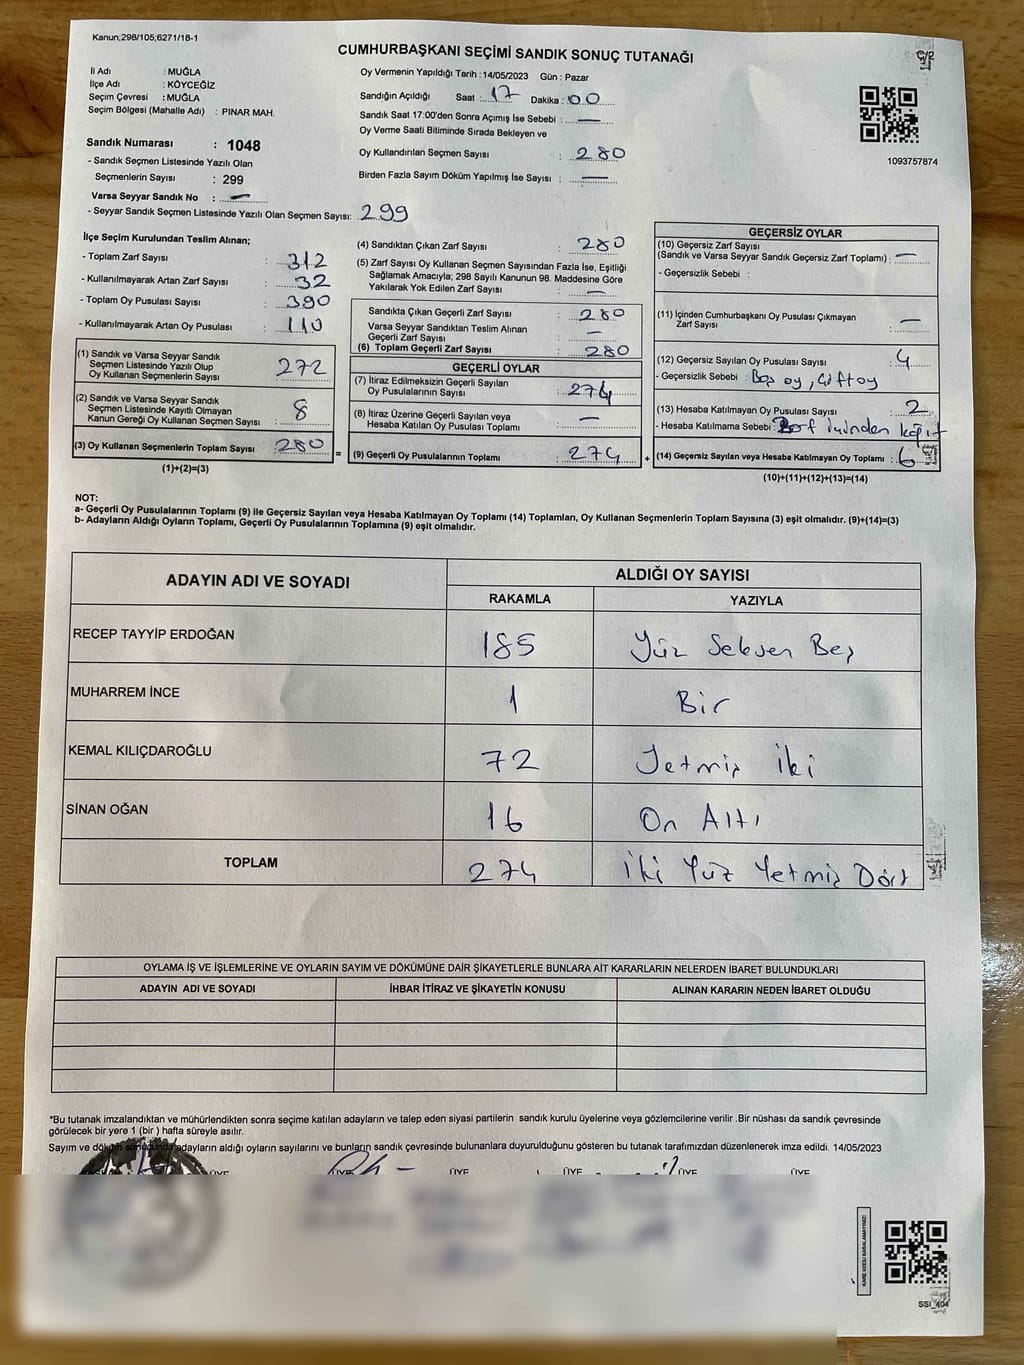 Kanun;298/105,6271/18-1
CUMHURBAŞKANI SEÇİMİ SANDIK SONUÇ TUTANAĞI
İl Adı : MUĞLA
İlçe Adı : KÖYCEĞİZ
Seçim Çevresi : MUĞLA
Seçim Bölgesi (Mahalle Adı) : PINAR MAH.
Sandık Numarası : 1048
- Sandık Seçmen Listesinde Yazılı Olan
Seçmenlerin Sayısı : 299
Varsa Seyyar Sandık No : —
- Seyyar Sandık Seçmen Listesinde Yazılı Olan Seçmen Sayısı: 299
Oy Vermenin Yapıldığı Tarih : 14/05/2023 Gün : Pazar
Sandığın Açıldığı Saat : 17 Dakika : 00
Sandık Saat 17:00'den Sonra Açımış İse Sebebi : —
Oy Verme Saati Bitiminde Sırada Bekleyen ve
Oy Kullandırılan Seçmen Sayısı : 280
Birden Fazla Sayım Döküm Yapılmış İse Sayısı : —
1093757874
İlçe Seçim Kurulundan Teslim Alınan;
- Toplam Zarf Sayısı : 312
- Kullanılmayarak Artan Zarf Sayısı : 32
- Toplam Oy Pusulası Sayısı : 390
- Kullanılmayarak Artan Oy Pusulası : 110
(1) Sandık ve Varsa Seyyar Sandık
Seçmen Listesinde Yazılı Olup
Oy Kullanan Seçmenlerin Sayısı : 272
(2) Sandık ve Varsa Seyyar Sandık
Seçmen Listesinde Kayıtlı Olmayan
Kanun Gereği Oy Kullanan Seçmen Sayısı : 8
(3) Oy Kullanan Seçmenlerin Toplam Sayısı : 280
(1)+(2)=(3)
=
(4) Sandıktan Çıkan Zarf Sayısı : 280
(5) Zarf Sayısı Oy Kullanan Seçmen Sayısından Fazla İse, Eşitliği
Sağlamak Amacıyla; 298 Sayılı Kanunun 98. Maddesine Göre
Yakılarak Yok Edilen Zarf Sayısı : —
Sandıkta Çıkan Geçerli Zarf Sayısı : 280
Varsa Seyyar Sandıktan Teslim Alınan
Geçerli Zarf Sayısı : —
(6) Toplam Geçerli Zarf Sayısı : 280
GEÇERLİ OYLAR
(7) İtiraz Edilmeksizin Geçerli Sayılan
Oy Pusulalarının Sayısı : 274
(8) İtiraz Üzerine Geçerli Sayılan veya
Hesaba Katılan Oy Pusulası Toplamı : —
(9) Geçerli Oy Pusulalarının Toplamı : 274
+
GEÇERSİZ OYLAR
(10) Geçersiz Zarf Sayısı
(Sandık ve Varsa Seyyar Sandık Geçersiz Zarf Toplamı) : —
- Geçersizlik Sebebi :
(11) İçinden Cumhurbaşkanı Oy Pusulası Çıkmayan
Zarf Sayısı : —
(12) Geçersiz Sayılan Oy Pusulası Sayısı : 4
- Geçersizlik Sebebi : Boş oy, Çift oy
(13) Hesaba Katılmayan Oy Pusulası Sayısı : 2
- Hesaba Katılmama Sebebi : içinden kağıt
(14) Geçersiz Sayılan veya Hesaba Katılmayan Oy Toplamı : 6
(10)+(11)+(12)+(13)=(14)
NOT:
a- Geçerli Oy Pusulalarının Toplamı (9) ile Geçersiz Sayılan veya Hesaba Katılmayan Oy Toplamı (14) Toplamları, Oy Kullanan Seçmenlerin Toplam Sayısına (3) eşit olmalıdır. (9)+(14)=(3)
b- Adayların Aldığı Oyların Toplamı, Geçerli Oy Pusulalarının Toplamına (9) eşit olmalıdır.
ADAYIN ADI VE SOYADI ALDIĞI OY SAYISI
RAKAMLA YAZIYLA
RECEP TAYYİP ERDOĞAN 185 Yüz Seksen Beş
MUHARREM İNCE 1 Bir
KEMAL KILIÇDAROĞLU 72 Yetmiş iki
SİNAN OĞAN 16 On Altı
TOPLAM 274 İki Yüz Yetmiş Dört
OYLAMA İŞ VE İŞLEMLERİNE VE OYLARIN SAYIM VE DÖKÜMÜNE DAİR ŞİKAYETLERLE BUNLARA AİT KARARLARIN NELERDEN İBARET BULUNDUKLARI
ADAYIN ADI VE SOYADI İHBAR İTİRAZ VE ŞİKAYETİN KONUSU ALINAN KARARIN NEDEN İBARET OLDUĞU
*Bu tutanak imzalandıktan ve mühürlendikten sonra seçime katılan adayların ve talep eden siyasi partilerin sandık kurulu üyelerine veya gözlemcilerine verilir .Bir nüshası da sandık çevresinde
görülecek bir yere 1 (bir ) hafta süreyle asılır.
Sayım ve döküm sonucunda adayların aldığı oyların sayılarını ve bunların sandık çevresinde bulunanlara duyurulduğunu gösteren bu tutanak tarafımızdan düzenlenerek imza edildi. 14/05/2023
ÜYE ÜYE ÜYE ÜYE ÜYE ÜYE
KARE KODU KARALAMAYINIZ!
SSİ_404